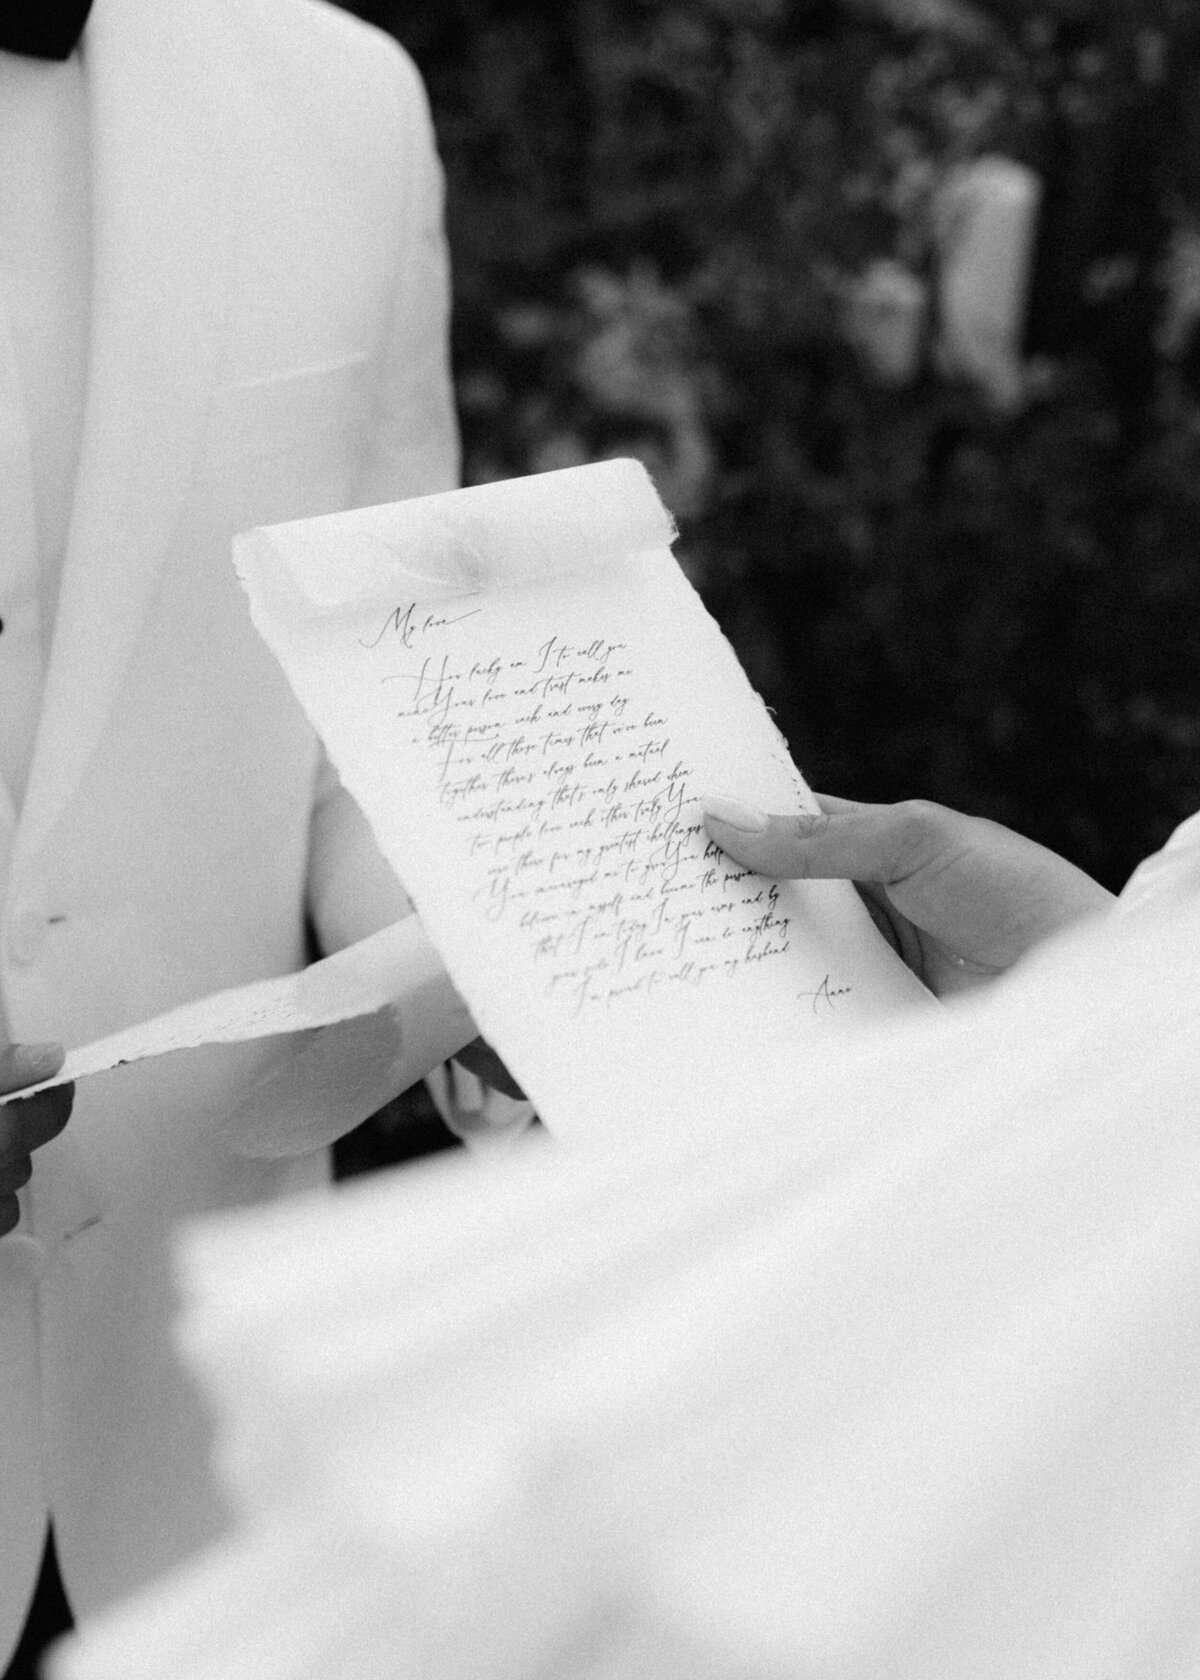 My love
How lucky am I to call you
mine Your love and trust makes me
a better person each and every day
For all those times that we've been
together there's always been a mutual
understanding that's only shared when
two people love each other truly You
were there for my greatest challenges
You encouraged me to grow You help
believe in myself and become the person
that I am today In your arms and by
your side I know I can do anything
I'm proud to call you my husband
Anna